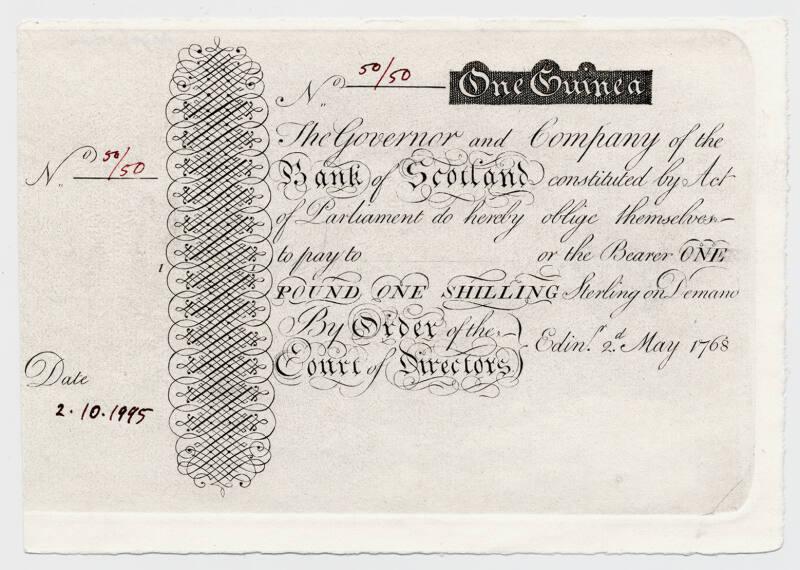 No 50/50 One Guinea
The Governor and Company of the
No 50/50
Bank of Scotland constituted by Act
of Parliament do hereby oblige themselves
to pay to or the Bearer ONE
1
POUND ONE SHILLING Sterling on Demand
By Order of the
Court of Directors
Edinr. 2d. May 1768
Date
2.10.1995